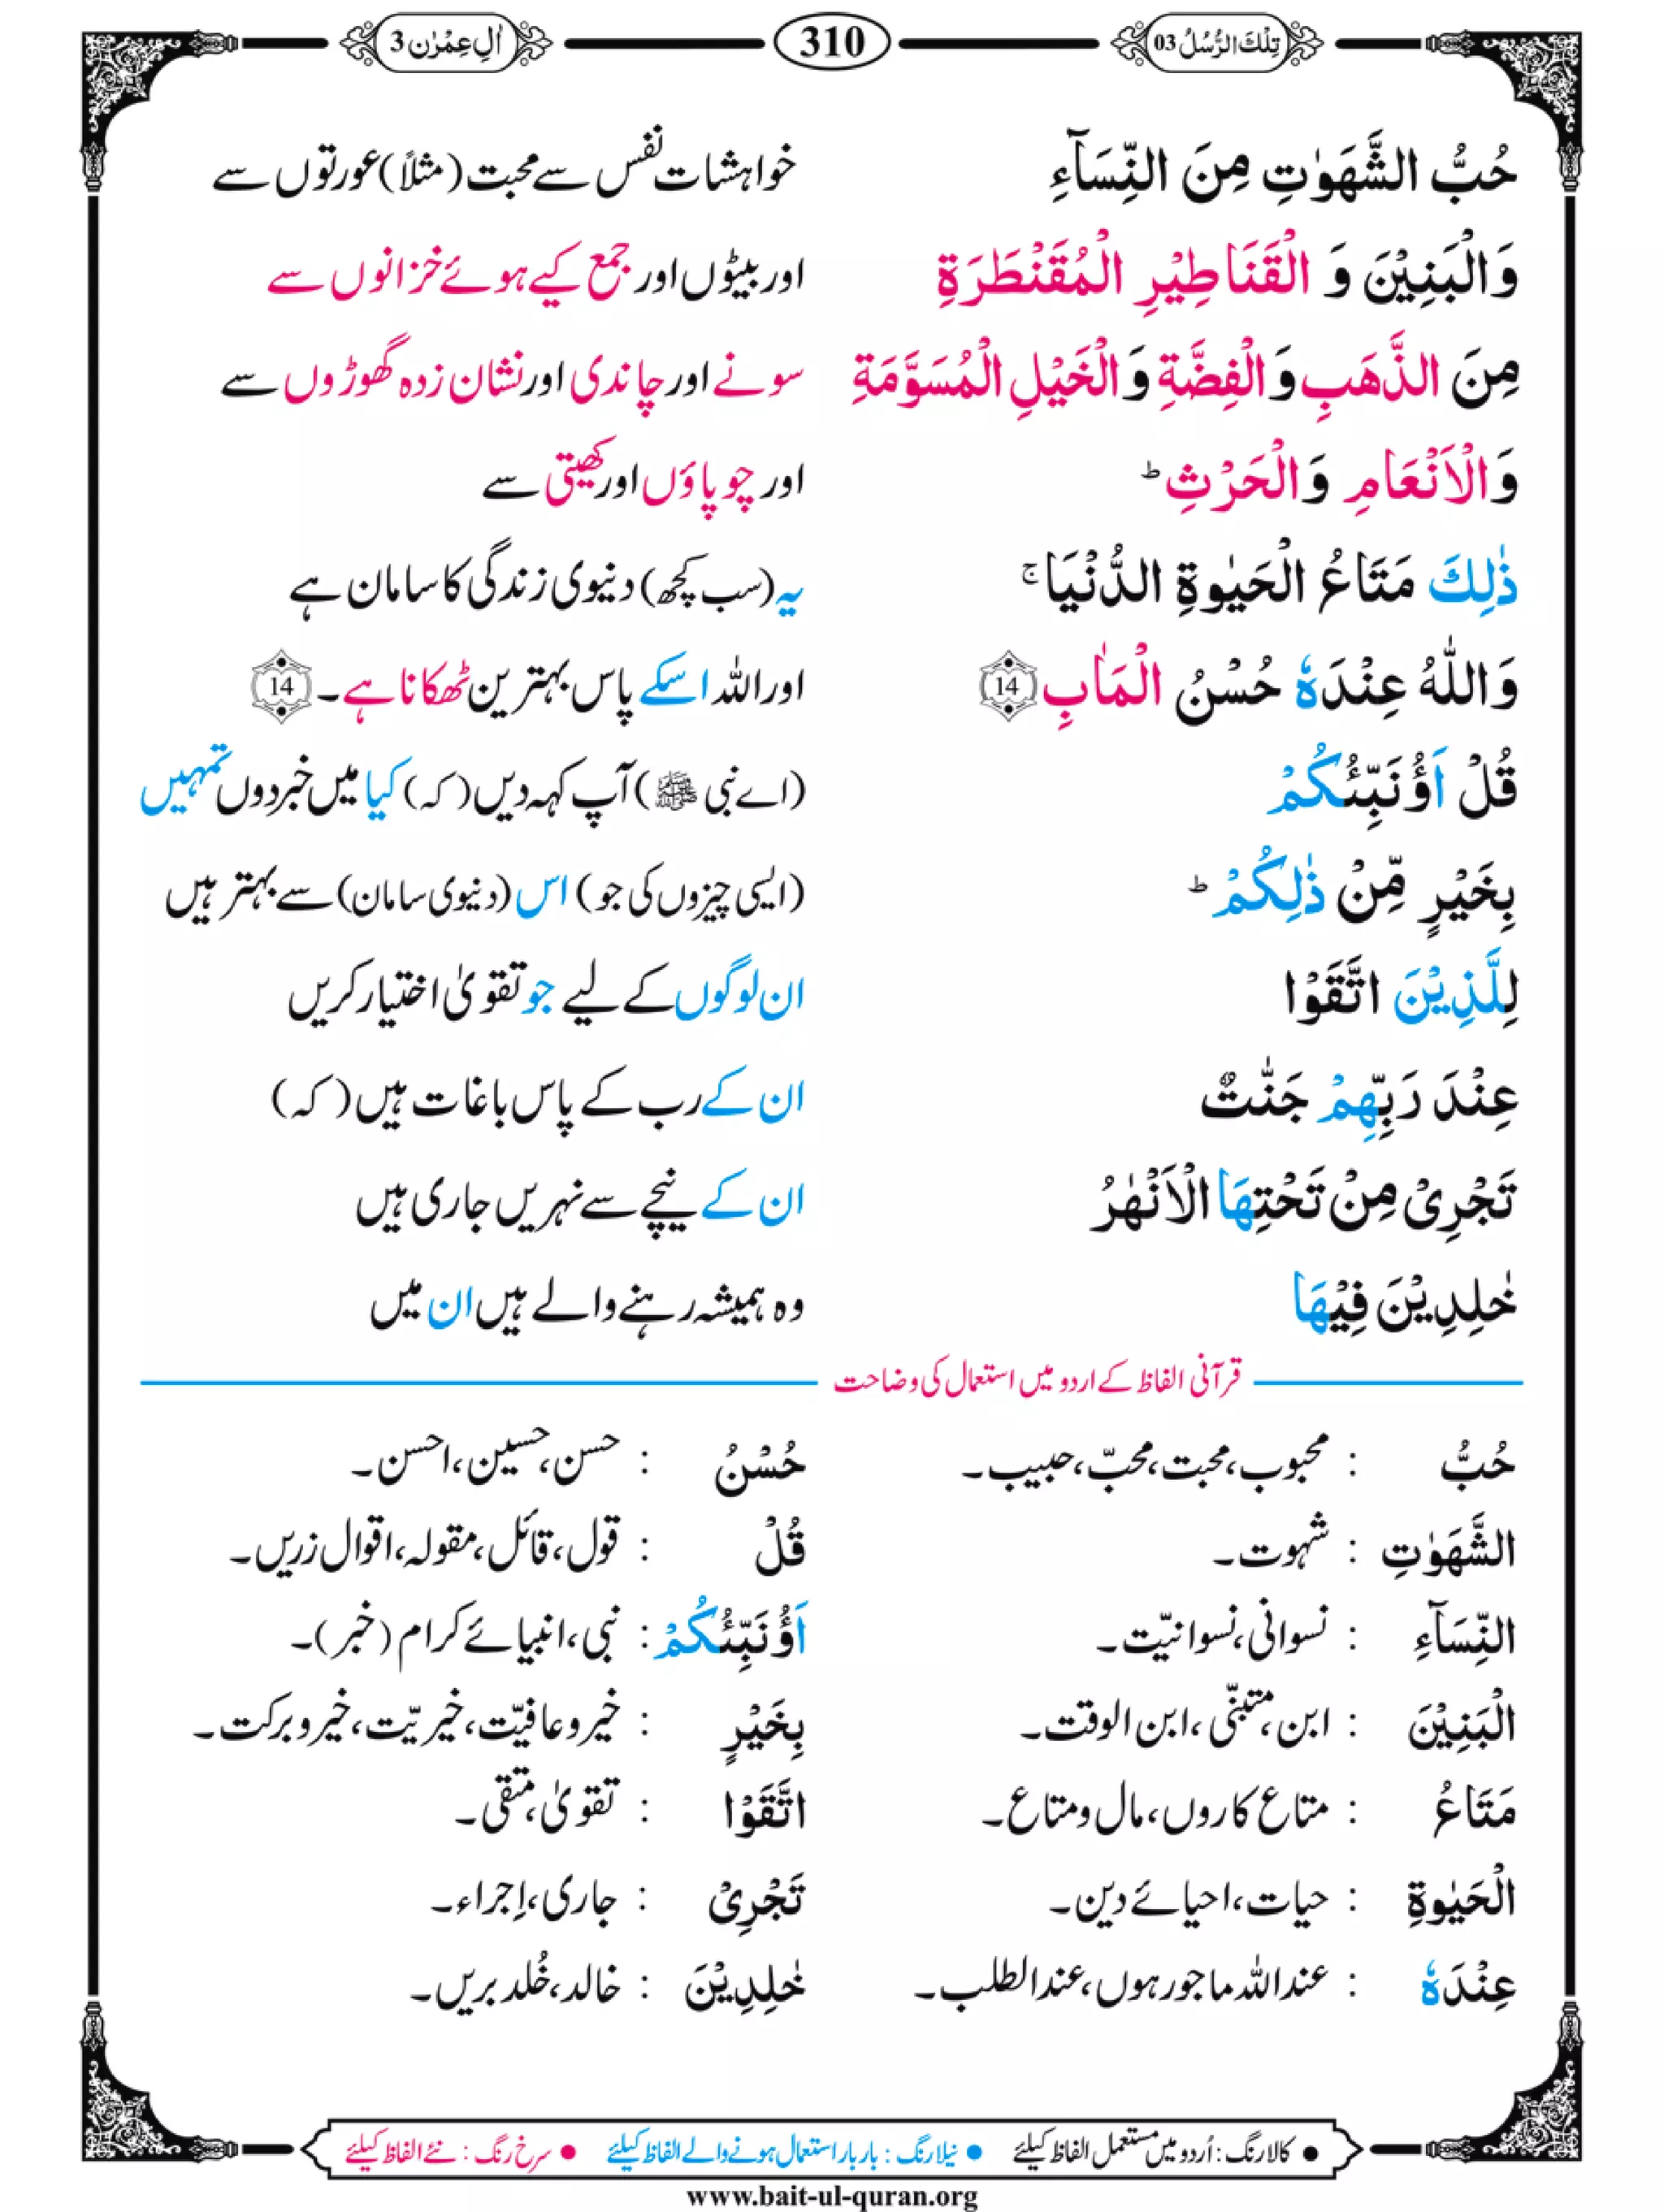 تِلْكَ الرُّسُلُ 03
310
اٰلِ عِمْرٰن 3
حُبُّ الشَّهَوٰتِ مِنَ النِّسَآءِ خواہشات نفس سے محبت (مثلاً) عورتوں سے
وَالْبَنِيْنَ وَ الْقَنَاطِيْرِ الْمُقَنْطَرَةِ اور بیٹوں اور جمع کیے ہوئے خزانوں سے
مِنَ الذَّهَبِ وَالْفِضَّةِ وَالْخَيْلِ الْمُسَوَّمَةِ سونے اور چاندی اور نشان زدہ گھوڑوں سے
وَالْاَنْعَامِ وَالْحَرْثِ ؕ اور چوپاؤں اور کھیتی سے
ذٰلِكَ مَتَاعُ الْحَيٰوةِ الدُّنْيَا ۚ یہ (سب کچھ) دنیوی زندگی کا سامان ہے
وَاللّٰهُ عِنْدَهٗ حُسْنُ الْمَاٰبِ 14 اور اللہ اسکے پاس بہترین ٹھکانا ہے۔ 14
قُلْ اَؤُنَبِّئُكُمْ (اے نبی ﷺ) آپ کہہ دیں (کہ) کیا میں خبر دوں تمہیں
بِخَيْرٍ مِّنْ ذٰلِكُمْ ؕ (ایسی چیزوں کی جو) اس (دنیوی سامان) سے بہتر ہیں
لِلَّذِيْنَ اتَّقَوْا ان لوگوں کے لیے جو تقویٰ اختیار کریں
عِنْدَ رَبِّهِمْ جَنّٰتٌ ان کے رب کے پاس باغات ہیں (کہ)
تَجْرِيْ مِنْ تَحْتِهَا الْاَنْهٰرُ ان کے نیچے سے نہریں جاری ہیں
خٰلِدِيْنَ فِيْهَا وہ ہمیشہ رہنے والے ہیں ان میں
قرآنی الفاظ کے اردو میں استعمال کی وضاحت
حُبُّ : محبوب، محبت، محبّ، حبیب۔ حُسْنُ : حسن، حسین، احسن۔
الشَّهَوٰتِ : شہوت۔ قُلْ : قول، قائل، مقولہ، اقوال زریں۔
النِّسَآءِ : نسوانی، نسوانیّت۔ اَؤُنَبِّئُكُمْ : نبی، انبیائے کرام (خبر)۔
الْبَنِيْنَ : ابن، متبنّٰی، ابن الوقت۔ بِخَيْرٍ : خیر و عافیّت، خیریّت، خیر و برکت۔
مَتَاعُ : متاع کارواں، مال و متاع۔ اتَّقَوْا : تقویٰ، متقی۔
الْحَيٰوةِ : حیات، احیائے دین۔ تَجْرِيْ : جاری، اِجراء۔
عِنْدَهٗ : عند اللہ ماجور ہوں، عند الطلب۔ خٰلِدِيْنَ : خالد، خُلد بریں۔
● کالا رنگ : اُردو میں مستعمل الفاظ کیلئے ● نیلا رنگ : بار بار استعمال ہونے والے الفاظ کیلئے ● سرخ رنگ : نئے الفاظ کیلئے
www.bait-ul-quran.org